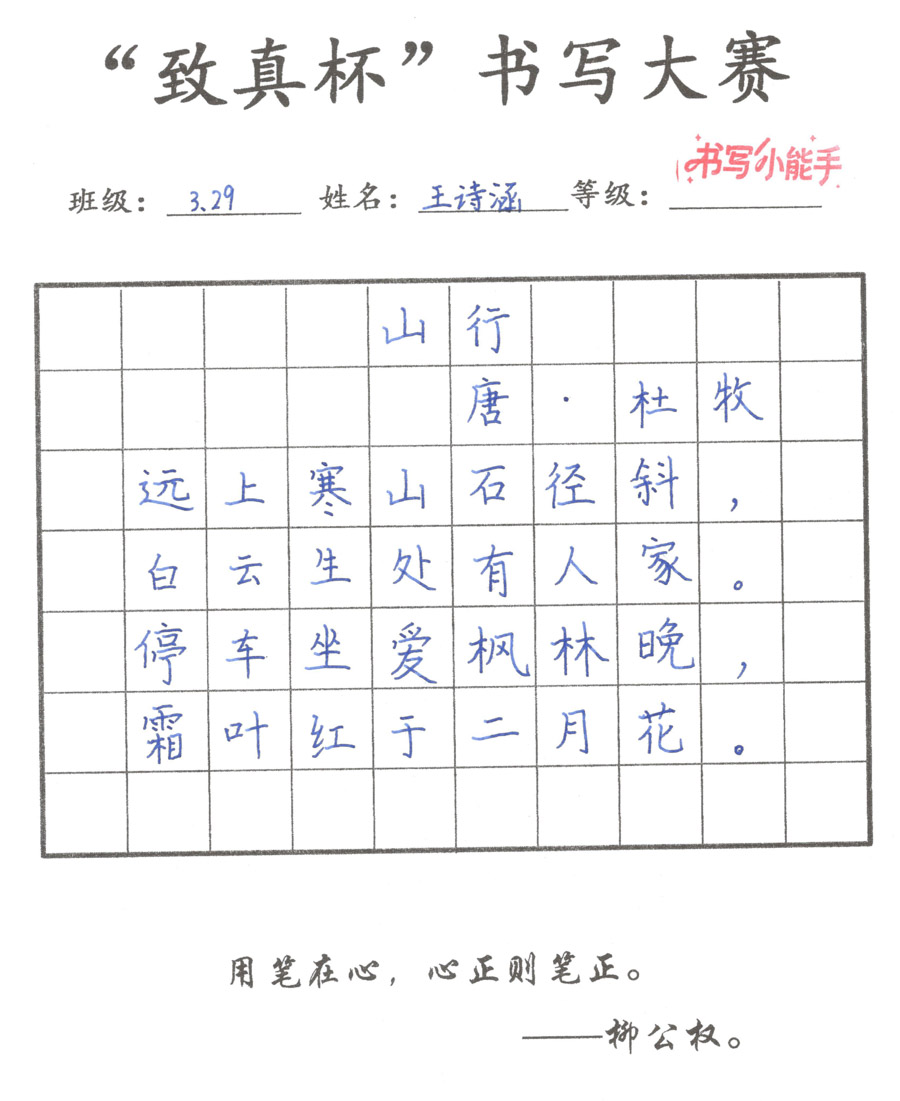 “致真杯”书写大赛
书写小能手
班级：3.29 姓名：王诗涵 等级：
山行
唐·杜牧
远上寒山石径斜，
白云生处有人家。
停车坐爱枫林晚，
霜叶红于二月花。
用笔在心，心正则笔正。
——柳公权。